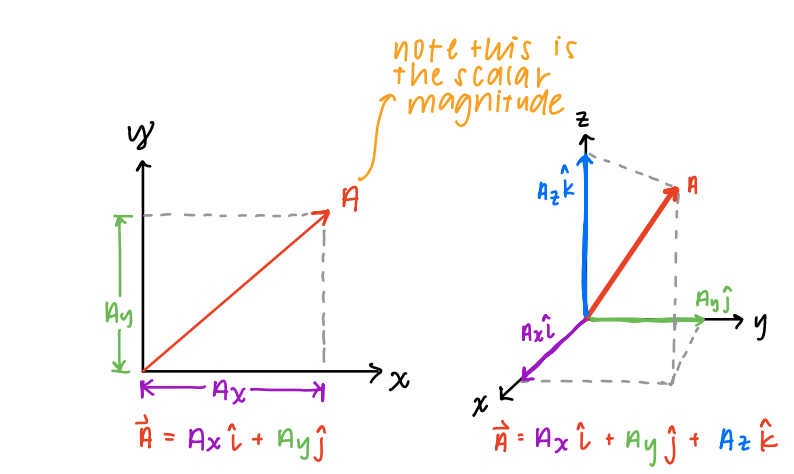 note this is
the scalar
magnitude
y
A
Ay
Ax
x
A⃗ = Ax î + Ay ĵ
z
Az k̂
A
Ay ĵ
y
Ax î
x
A⃗ = Ax î + Ay ĵ + Az k̂